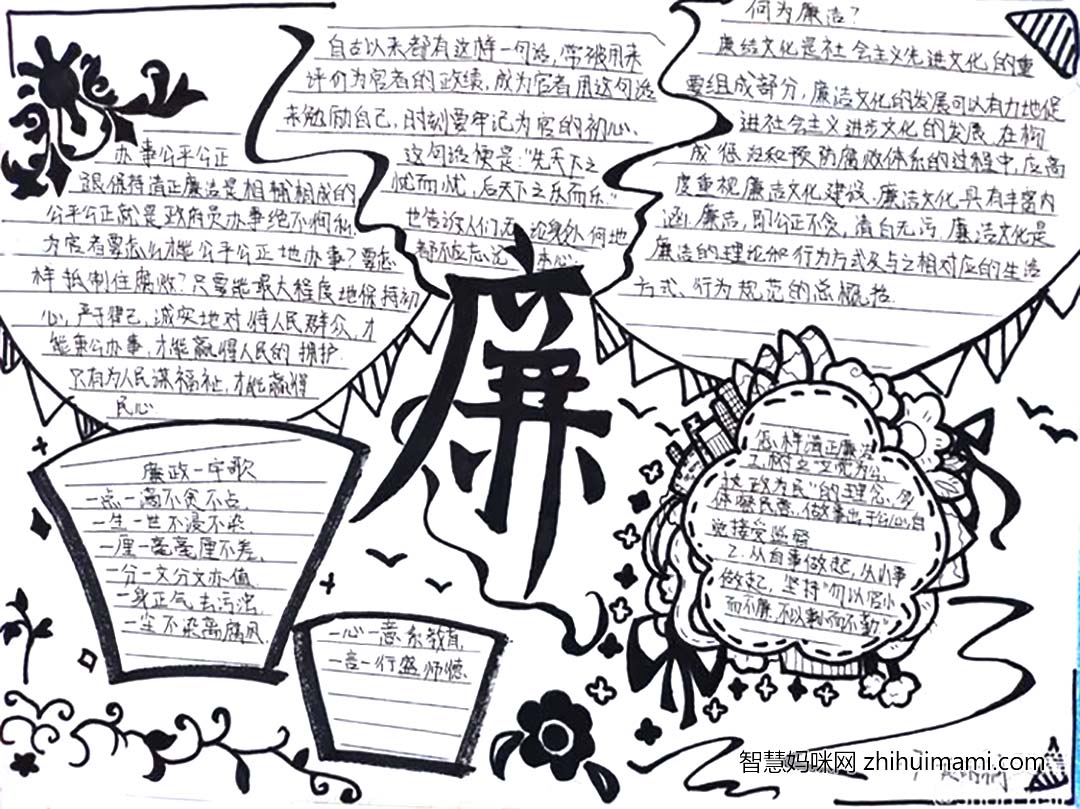 办事公平公正
跟保持清正廉洁是相辅相成的
公平公正就是政府员办事绝不徇私
为官者要怎么才能公平公正地办事？要怎
样抵制住腐败？只要能最大程度地保持初
心，严于律己，诚实地对待人民群众，才
能秉公办事，才能赢得人民的拥护.
只有为人民谋福祉，才能赢得
民心.
自古以来都有这样一句话，常被用来
评价为官者的政绩，成为官者用这句话
来勉励自己，时刻要牢记为官的初心.
这句话便是：“先天下之
忧而忧，后天下之乐而乐.”
也告诉人们无论身处何地
都不应忘记 本心.
何为廉洁？
廉洁文化是社会主义先进文化的重
要组成部分，廉洁文化的发展可以有力地促
进社会主义进步文化的发展.在构
成惩治和预防腐败体系的过程中，应高
度重视廉洁文化建设.廉洁文化具有丰富内
涵.廉洁，即公正不贪，清白无污.廉洁文化是
廉洁的理论和行为方式及与之相对应的生活
方式、行为规范的总概括.
廉
廉政一字歌
一点一滴不贪不占.
一生一世不浸不染.
一厘一毫毫厘不差.
一分一文分文亦值.
一身正气去污浊.
一尘不染离腐风.
一心一意系教育.
一言一行盛师德.
怎样清正廉洁
1.树立“立党为公，
执政为民”的理念，多
体察民意，做事出于公心，自
觉接受监督
2.从自事做起，从小事
做起，坚持“勿以官小
而不廉，不以事小而不勤”
智慧妈咪网 zhihuimami.com